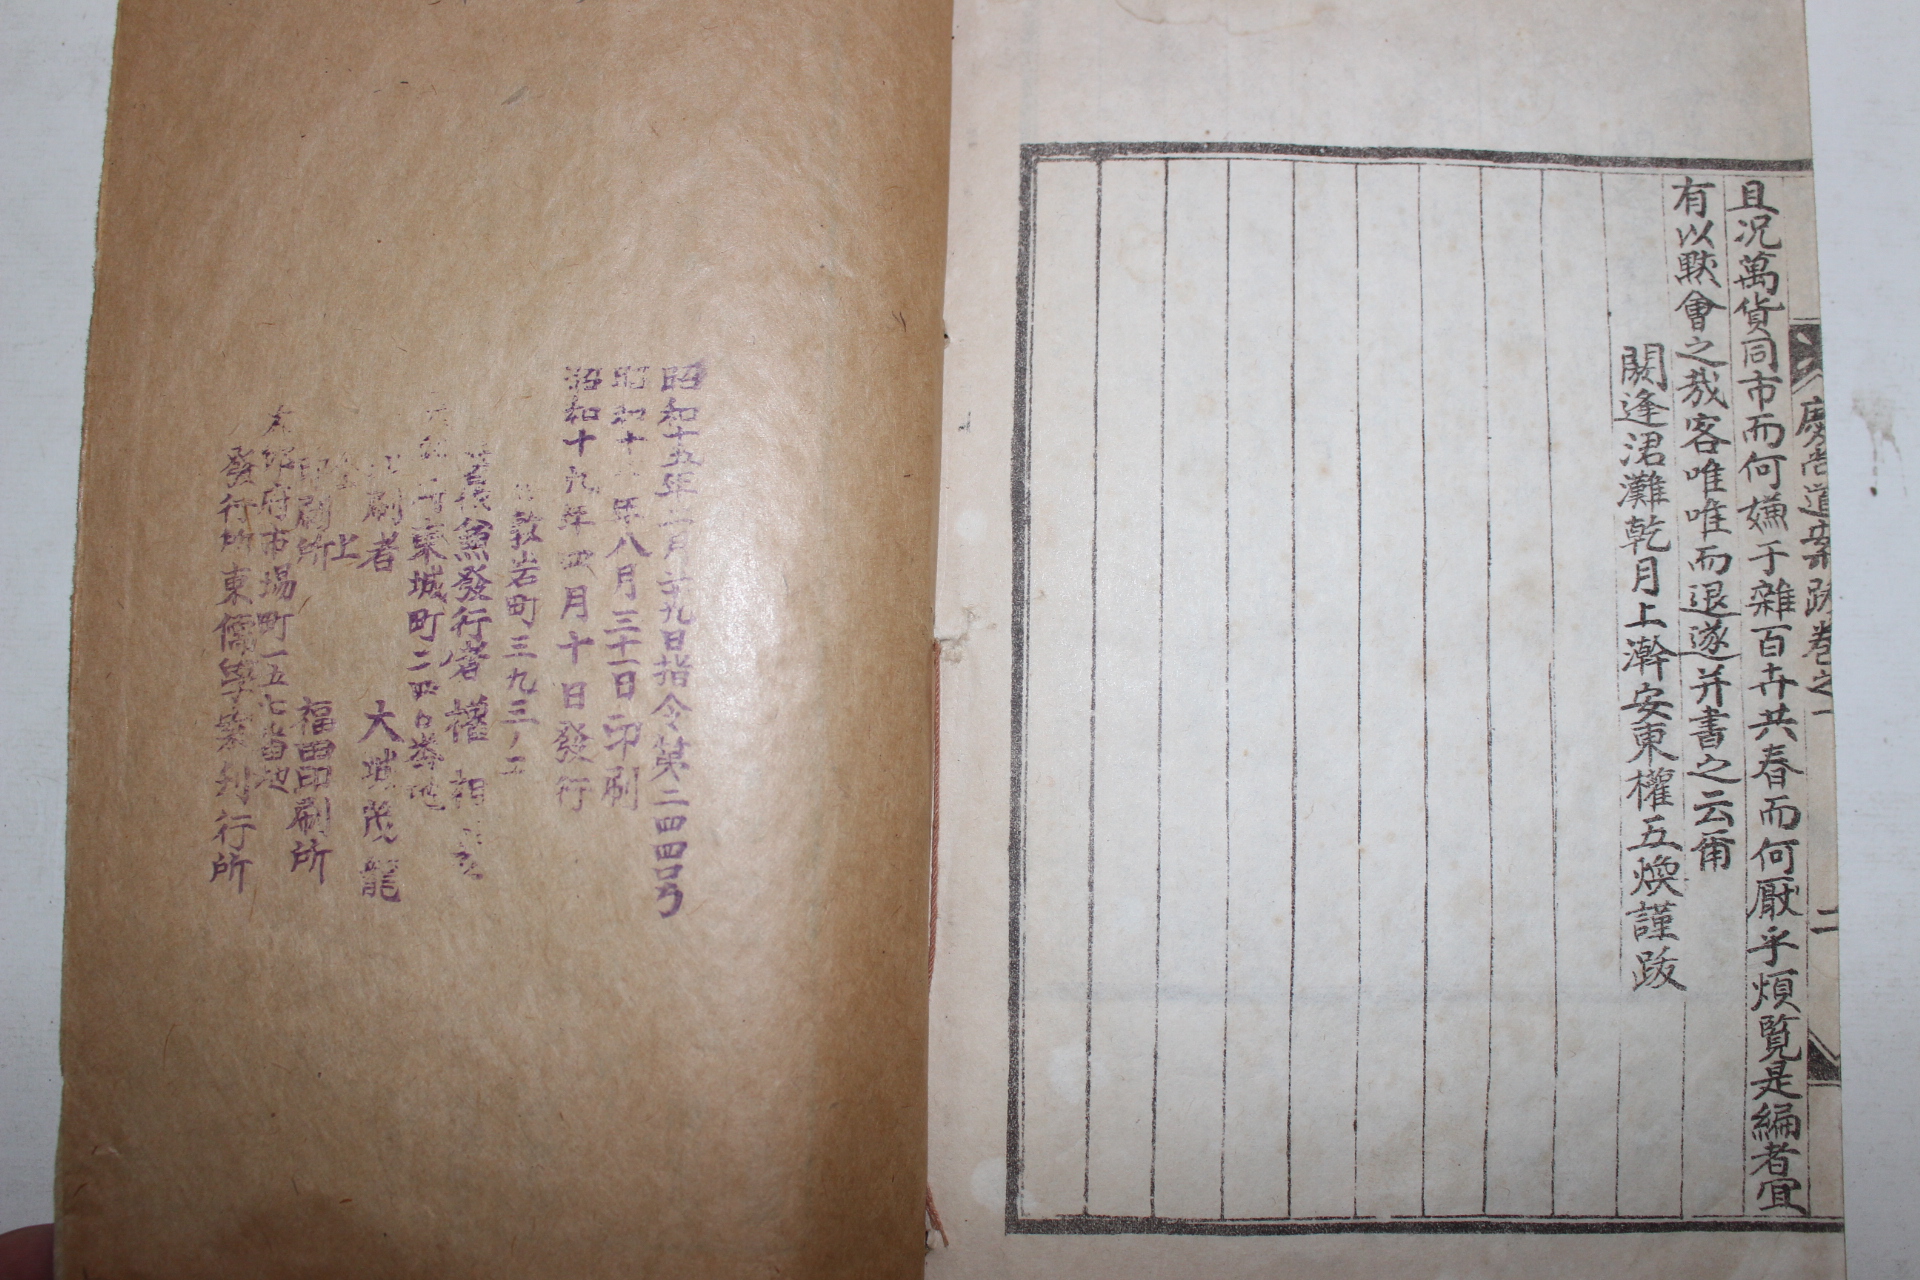 慶尚道案跋卷之一
二
且况萬貨同市而何嫌于雜百卉共春而何厭乎煩覽是編者宜
有以默會之哉客唯唯而退遂并書之云爾
閼逢涒灘乾月上澣安東權五煥謹跋
昭和十五年二月廿九日指令第二四四号
昭和十 年八月三十一日印刷
昭和十九年四月十日發行
敦岩町三九三ノ五
著作兼發行者 權 相
東城町二四 番地
印刷者 大城茂龍
上
印刷所 福田印刷所
大邱府市場町一五七番地
發行所東儒學案刊行所